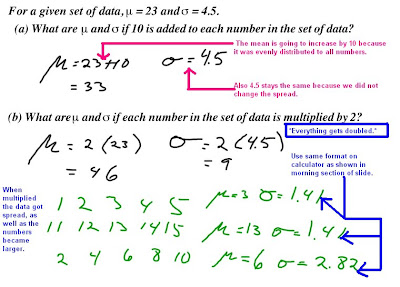 For a given set of data, μ = 23 and σ = 4.5.
(a) What are μ and σ if 10 is added to each number in the set of data?
μ = 23+10
= 33
σ = 4.5
The mean is going to increase by 10 because
it was evenly distributed to all numbers.
Also 4.5 stays the same because we did not
change the spread.
(b) What are μ and σ if each number in the set of data is multiplied by 2?
μ = 2 (23)
= 46
σ = 2 (4.5)
= 9
"Everything gets doubled."
Use same format on
calculator as shown in
morning section of slide.
When
multiplied
the data got
spread, as
well as the
numbers
became
larger.
1 2 3 4 5 μ=3 σ=1.41
11 12 13 14 15 μ=13 σ=1.41
2 4 6 8 10 μ=6 σ=2.82